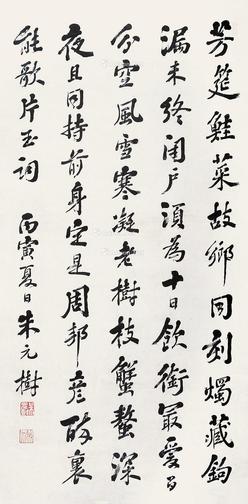 芳筵鮭菜故鄉同刻燭藏鉤
漏未終閉戶須為十日飲銜最愛百
分空風雪寒凝老樹枝蟹螯深
夜且同持前身定是周邦彥醉裏
能歌片玉詞 丙寅夏日朱元樹